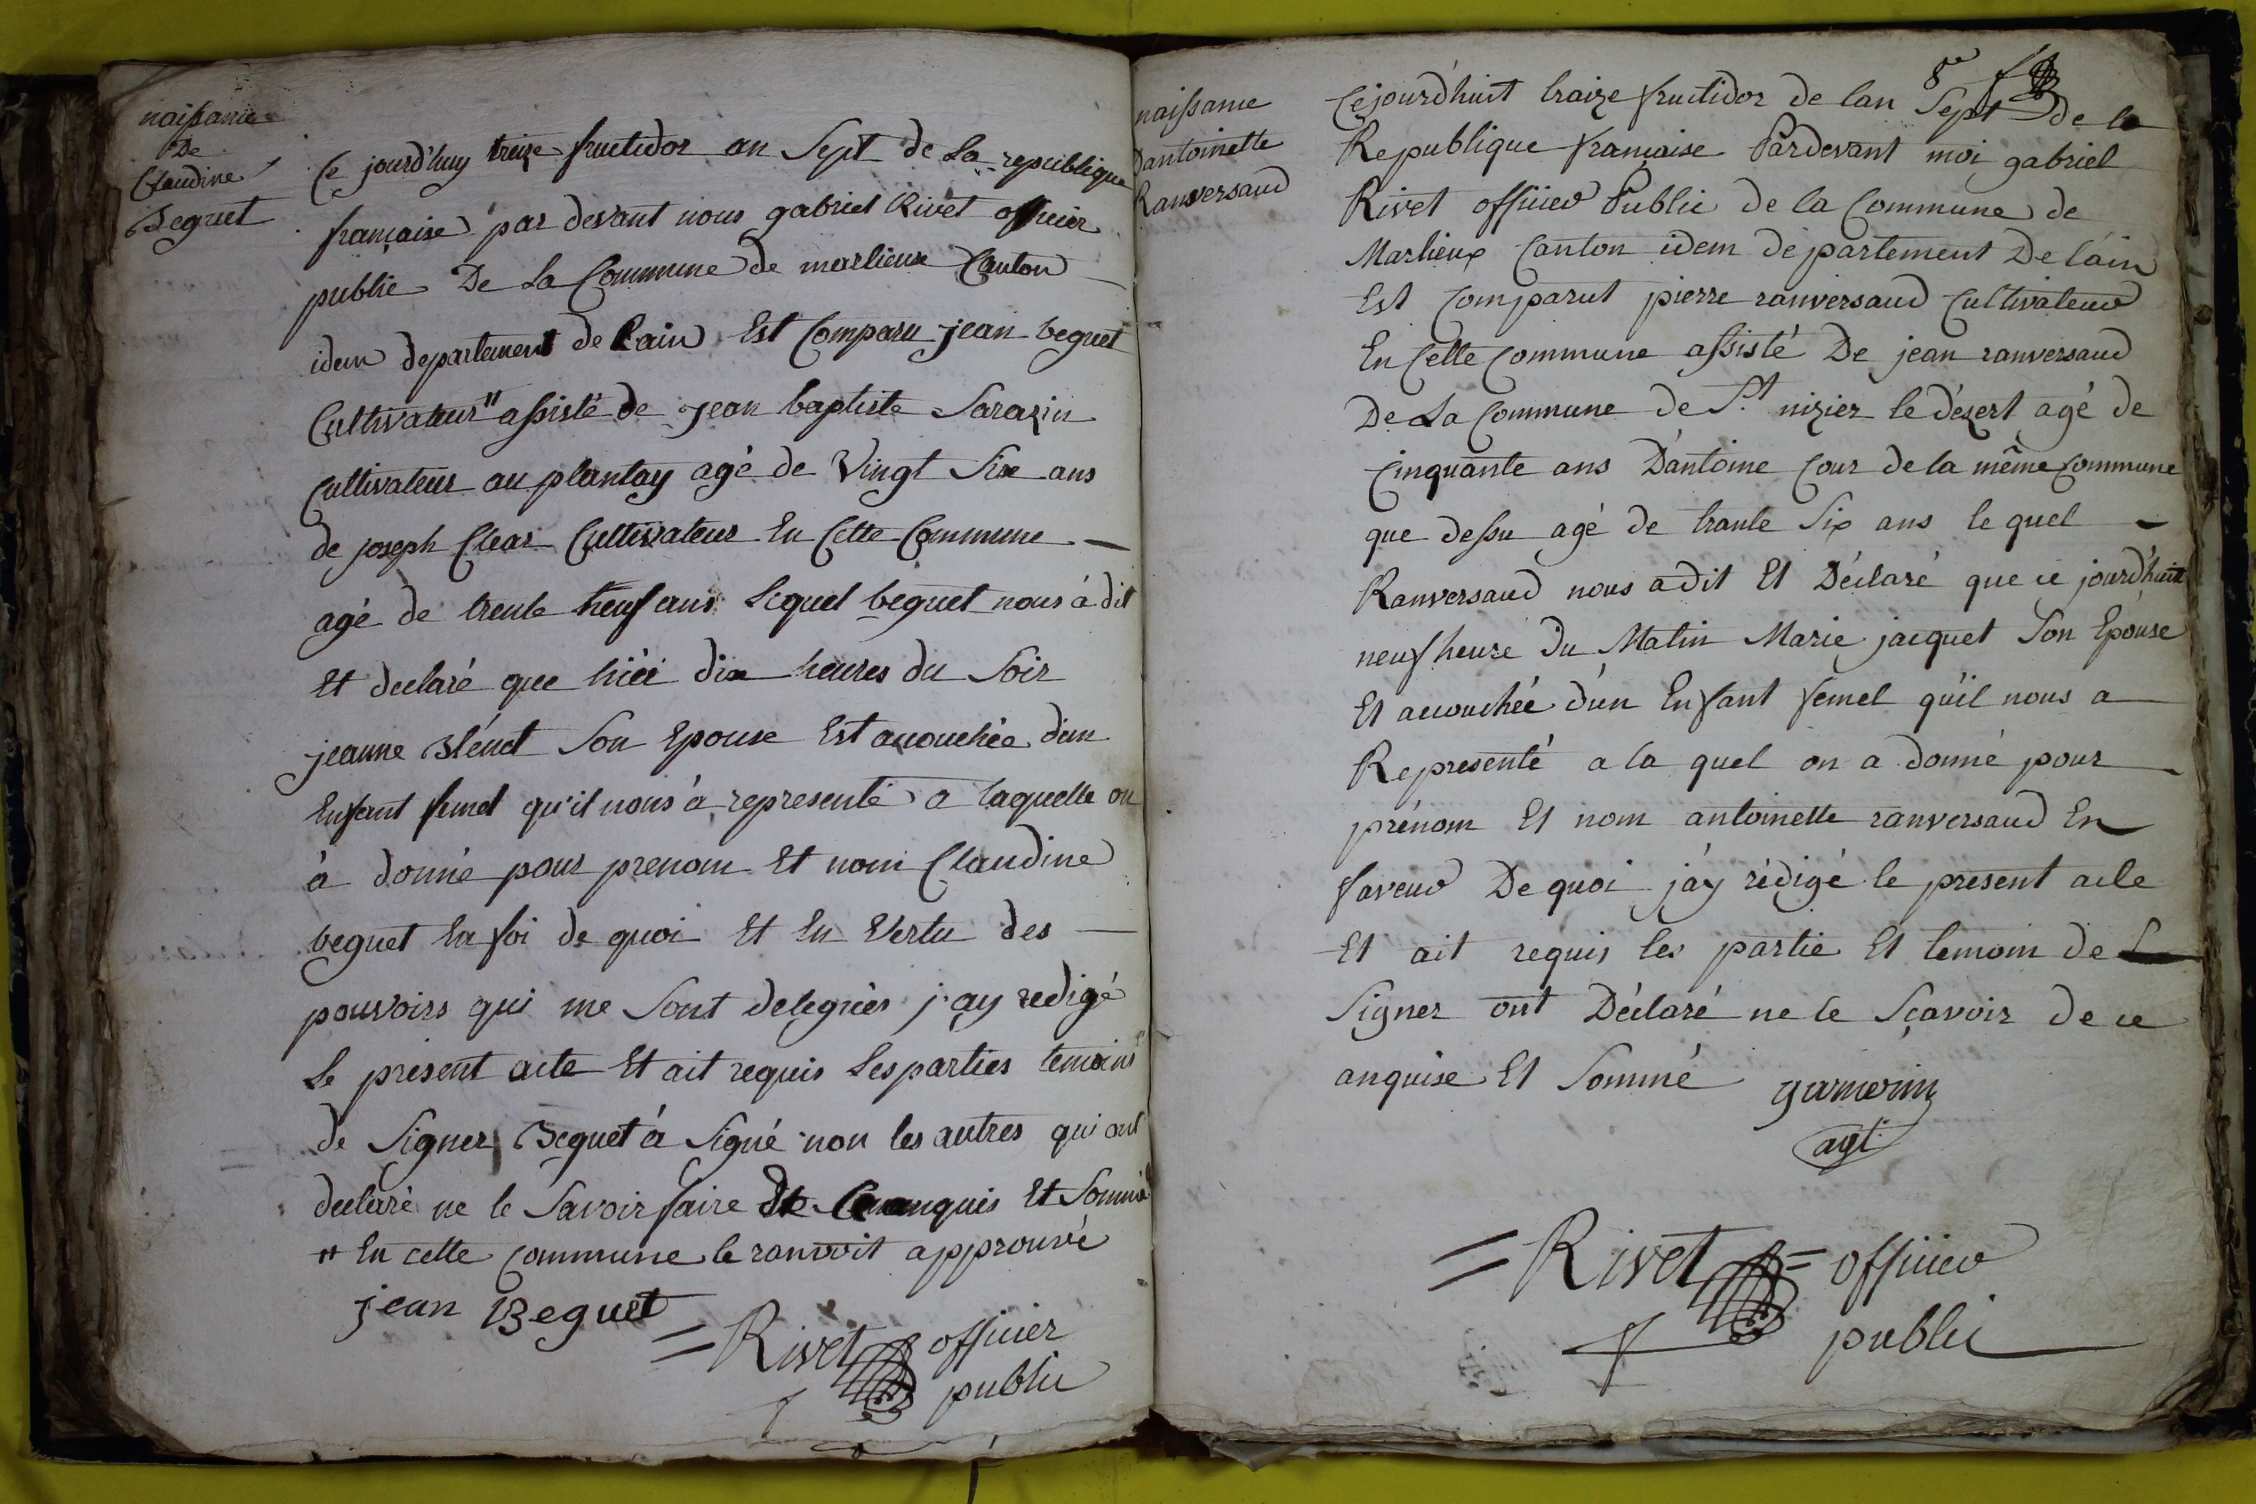 naissance
De
Claudine
Beguet
Ce jourd'huy treize fructidor an Sept de La republique
française par devant nous gabriel Rivet officier
public De La Commune de marlieux Canton
idem departement de Lain Est Comparu jean beguet
Cultivateur" assisté de jean baptiste Sarazin
Cultivateur au plantay agé de Vingt Six ans
de joseph Clear Cultivateur En Cette Commune
agé de trente neuf ans Lequel beguet nous à dit
Et declaré que hièr dix heures du Soir
jeanne Blénet Son Epouse Est acouchée d'un
Enfant femel qu'il nous à representé a laquelle on
à donné pour prenom Et nom Claudine
beguet En foi de quoi Et En Vertu des
pouvoirs qui me Sont deleguées j'ay redigé
Le présent acte Et ait requis Les parties temoins
de Signer Beguet à Signé non les autres qui ont
declaré ne le Savoir faire De Ce anquis Et Sommé
" En cette Commune le ranvoit approuvé
jean Beguet
= Rivet officier
public
naissance
Dantoinette
Ranversaud
Cejourd'huit traize fructidor de lan Sept 8e de la
Republique française Pardevant moi gabriel
Rivet officier Public de la Commune de
Marlieux Canton idem département De l'ain
Est Comparut pierre ranversaud Cultivateur
En Cette Commune assisté De jean ranversaud
De La Commune de St nizier le désert agé de
Cinquante ans D'antoine Cour de la même Commune
que dessu agé de trante Six ans le quel
Ranversaud nous a dit Et Déclaré que ce jourd'huit
neuf heure Du Matin Marie jacquet Son Epouse
Et accouchée d'un Enfant femel qu'il nous a
Representé a la quel on a donné pour
prénom Et nom antoinette ranversaud En
faveur De quoi j'ay rédigé le présent acte
Et ait requis les partie Et temoin de
Signer ont Déclaré ne le Sçavoir de ce
anquise Et Sommé garnerin
agt
= Rivet = officier
public